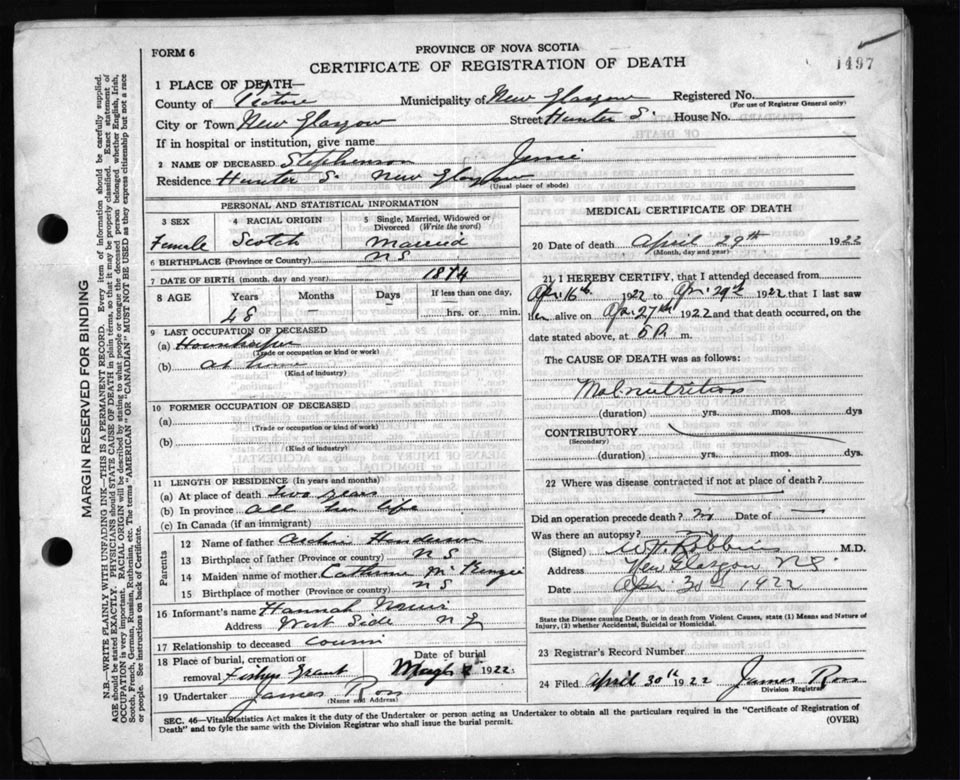 FORM 6
PROVINCE OF NOVA SCOTIA
CERTIFICATE OF REGISTRATION OF DEATH
1497
1 PLACE OF DEATH—
County of Pictou Municipality of New Glasgow Registered No.
(For use of Registrar General only)
City or Town New Glasgow Street Hunter S. House No.
If in hospital or institution, give name
2 NAME OF DECEASED Stephenson Jessie
Residence Hunter S. New Glasgow
(Usual place of abode)
PERSONAL AND STATISTICAL INFORMATION
3 SEX 4 RACIAL ORIGIN 5 Single, Married, Widowed or Divorced (Write the word)
Female Scotch Married
6 BIRTHPLACE (Province or Country) N S
7 DATE OF BIRTH (month, day and year) 1874
8 AGE Years Months Days If less than one day,
48 — — hrs. or min.
9 LAST OCCUPATION OF DECEASED
(a) Housekeeper
(Trade or occupation or kind or work)
(b) At home
(Kind of industry)
10 FORMER OCCUPATION OF DECEASED
(a)
(Trade or occupation or kind of work)
(b)
(Kind of industry)
11 LENGTH OF RESIDENCE (In years and months)
(a) At place of death Two years
(b) In province All her life
(c) In Canada (if an immigrant)
Parents
12 Name of father Archie Henderson
13 Birthplace of father (Province or country) N S
14 Maiden name of mother Catherine McKenzie
15 Birthplace of mother (Province or country) N S
16 Informant's name Hannah
Address West Side N G
17 Relationship to deceased Cousin
18 Place of burial, cremation or removal Fishers Grant
Date of burial
May 1922
19 Undertaker James Ross
(Name and Address)
MEDICAL CERTIFICATE OF DEATH
20 Date of death April 29th 1922
(Month, day and year)
21 I HEREBY CERTIFY, that I attended deceased from
Apr. 16th 1922 to Apr. 29th 1922 that I last saw
her alive on Apr. 27th 1922 and that death occurred, on the
date stated above, at 5 P. m.
The CAUSE OF DEATH was as follows:
Malnutrition
(duration) yrs. mos. dys
CONTRIBUTORY
(Secondary)
(duration) yrs. mos. dys.
22 Where was disease contracted if not at place of death?
Did an operation precede death? no Date of —
Was there an autopsy?
(Signed) W. H. Robbins M.D.
Address New Glasgow N S
Date Apr 30th 1922
State the Disease causing Death, or in death from Violent Causes, state (1) Means and Nature of
Injury, (2) whether Accidental, Suicidal or Homicidal.
23 Registrar's Record Number
24 Filed April 30th 1922 James Ross
Division Registrar
SEC. 46—Vital Statistics Act makes it the duty of the Undertaker or person acting as Undertaker to obtain all the particulars required in the "Certificate of Registration of
Death" and to fyle the same with the Division Registrar who shall issue the burial permit.
(OVER)
MARGIN RESERVED FOR BINDING
N.B.—WRITE PLAINLY WITH UNFADING INK—THIS IS A PERMANENT RECORD. Every item of information should be carefully supplied.
AGE should be stated EXACTLY. PHYSICIANS should STATE CAUSE OF DEATH in plain terms, so that it may be properly classified. Exact statement of
OCCUPATION is very important. RACIAL ORIGIN will be described by stating to what people or tongue the deceased person belonged, whether English, Irish,
Scotch, French, German, Russian, Ruthenian, etc. The terms "AMERICAN" OR "CANADIAN" MUST NOT BE USED as they express citizenship but not a race
or people. See instructions on back of Certificate.